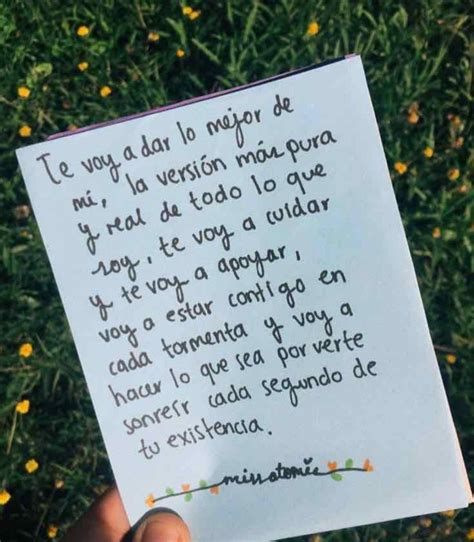 Te voy a dar lo mejor de
mí, la versión más pura
y real de todo lo que
soy, te voy a cuidar
y te voy a apoyar,
voy a estar contigo en
cada tormenta y voy a
hacer lo que sea por verte
sonreír cada segundo de
tu existencia.
missatomic